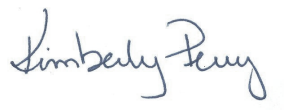 Kimberly Perry